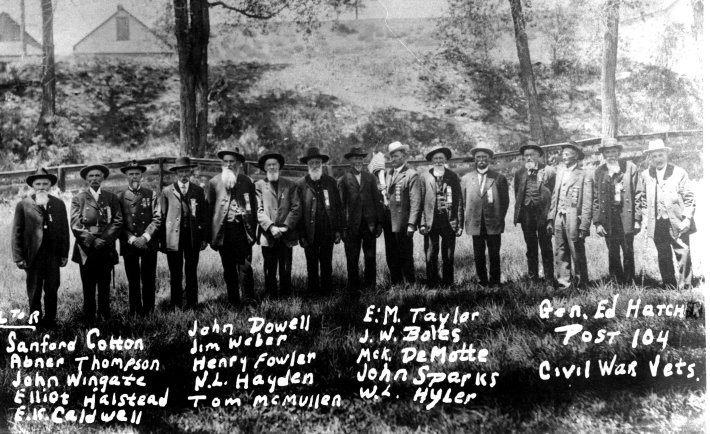 L To R
Sanford Cotton
Abner Thompson
John Wingate
Elliot Halstead
E.K. Caldwell
John Dowell
Jim Weber
Henry Fowler
N.L. Hayden
Tom McMullen
E.M. Taylor
J.W. Boles
McK. DeMotte
John Sparks
W.L. Hyler
Gen. Ed Hatch
Post 104
Civil War Vets.